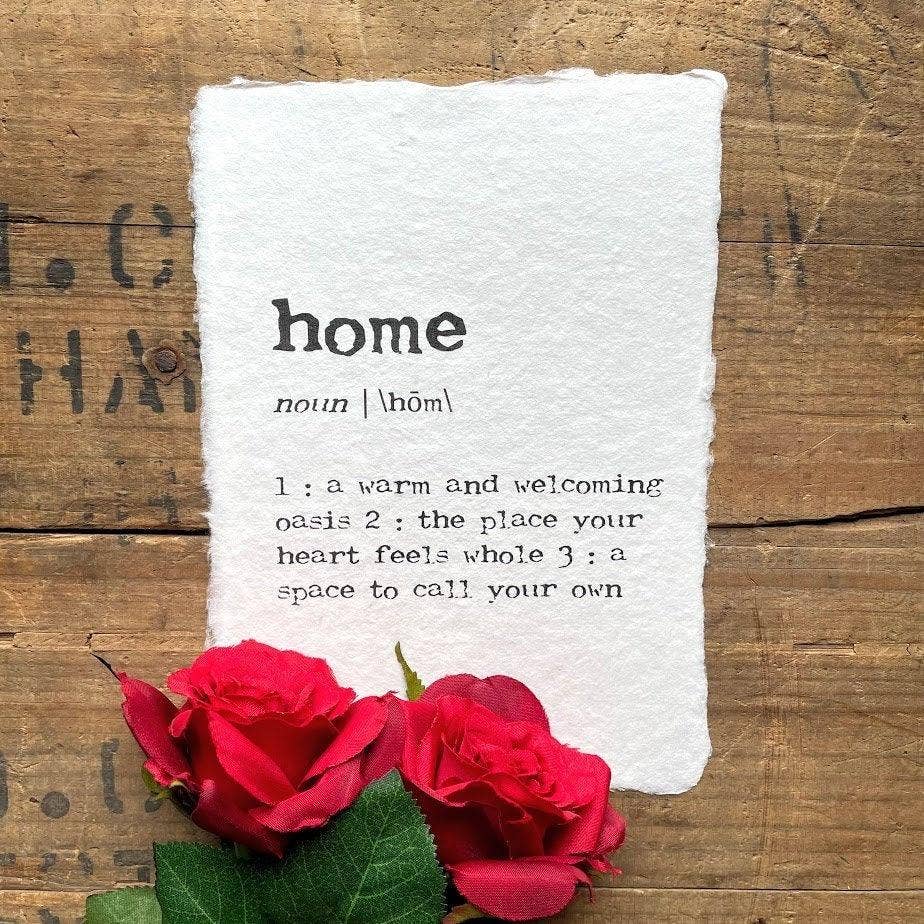 home
noun | \hōm\
1 : a warm and welcoming
oasis 2 : the place your
heart feels whole 3 : a
space to call your own